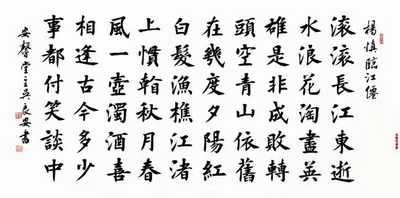 楊慎臨江僊
滚滚長江東逝
水浪花淘盡英
雄是非成敗轉
頭空青山依舊
在幾度夕陽紅
白髮漁樵江渚
上慣看秋月春
風一壺濁酒喜
相逢古今多少
事都付笑談中
安馨堂主吳良安書